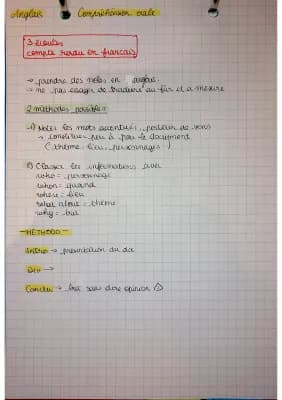 Anglais Compréhension orale
3 écoutes
compte rendu en français
→ prendre des notes en anglais.
→ ne pas essayer de traduire au fur et à mesure
2 méthodes possibles :
1) Noter les mots accentués, porteur de sens
→ construire peu à peu le document
(thème, lieu, personnages)
2) Classer les informations avec
who = personnage
when = quand
where = lieu
what about = thème
why = but
- METHODO -
Intro → présentation du doc
Dev →
Conclu → but sans dire opinion ⚠